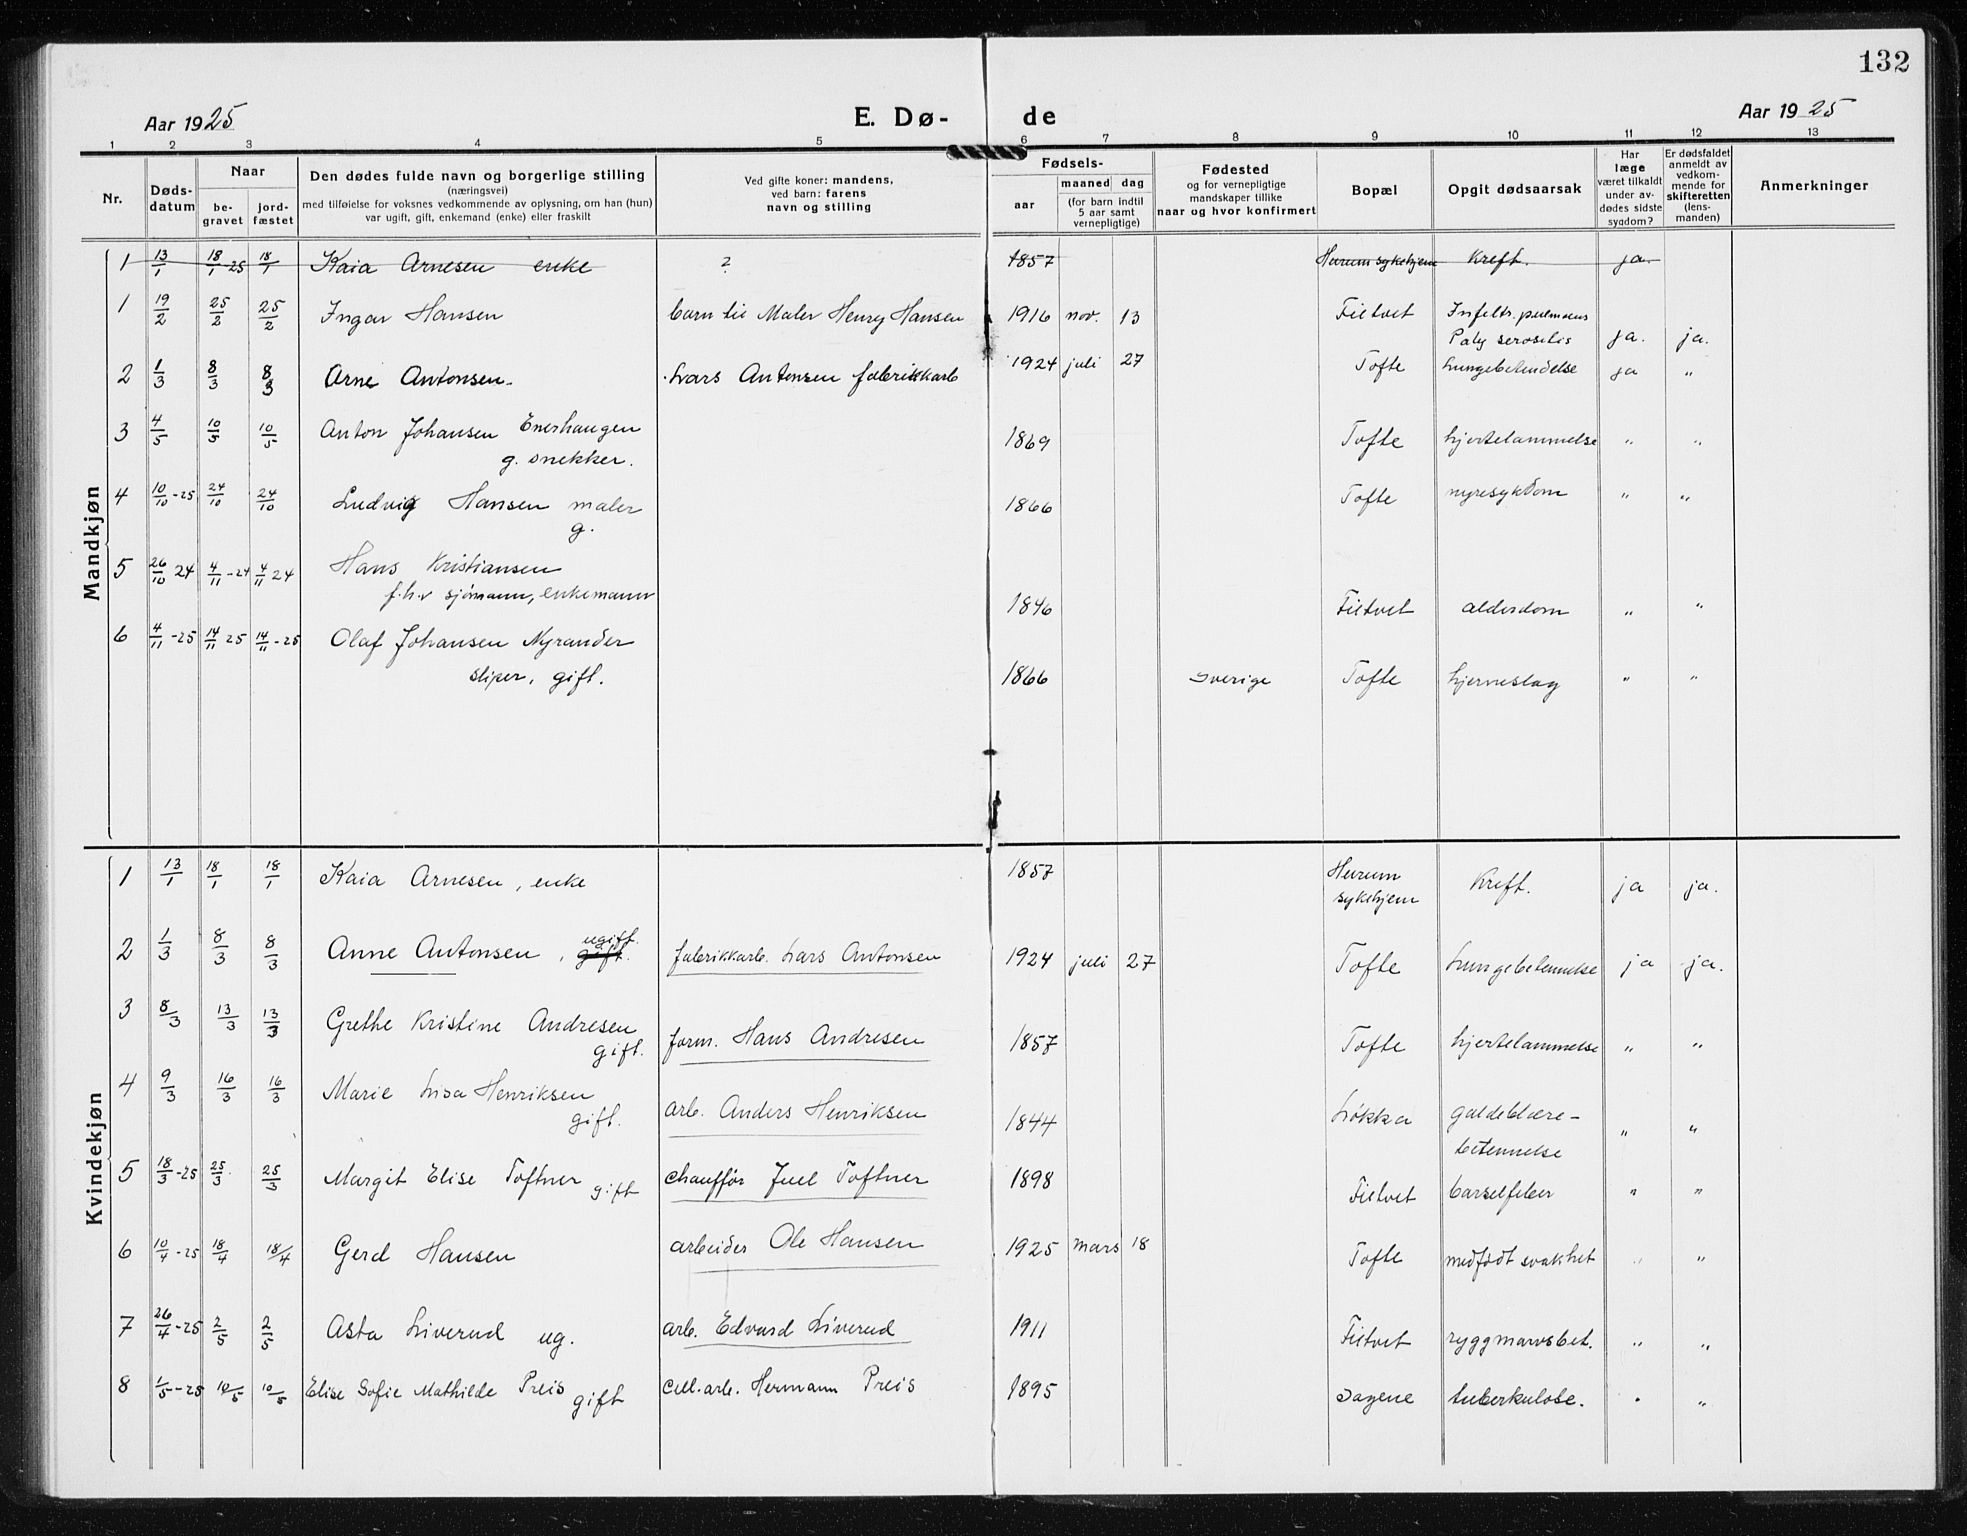 132
Aar 1925 E. Dø- de Aar 1925
1 2 3 4 5 6 7 8 9 10 11 12 13
Nr.
Døds-
datum
Naar
be-
gravet
jord-
fæstet
Den dødes fulde navn og borgerlige stilling
(næringsvei)
med tilføielse for voksnes vedkommende av oplysning, om han (hun)
var ugift, gift, enkemand (enke) eller fraskilt
Ved gifte koner: mandens,
ved barn: farens
navn og stilling
Fødsels-
aar
maaned dag
(for barn indtil
5 aar samt
vernepligtige)
Fødested
og for vernepligtige
mandskaper tillike
naar og hvor konfirmert
Bopæl
Opgit dødsaarsak
Har
læge
været tilkaldt
under av-
dødes sidste
sygdom?
Er dødsfaldet
anmeldt av
vedkom-
mende for
skifteretten
(lens-
manden)
Anmerkninger
Mandkjøn
1 13/1 18/1-25 18/1 Kaia Arnesen enke ? 1857 Hurum sykehjem Kreft. ja.
1 19/2 25/2 25/2 Ingar Hansen barn til Maler Henry Hansen 1916 nov. 13 Filtvet Infeltr. pulmans
Poly serositis ja. ja.
2 1/3 8/3 8/3 Arne Antonsen. Lars Antonsen fabrikkarb 1924 juli 27 Tofte Lungebetendelse ja "
3 4/5 10/5 10/5 Anton Johansen Enerhaugen
g. snekker. 1869 Tofte hjertelammelse " "
4 10/10-25 24/10 24/10 Ludvig Hansen maler
g. 1866 Tofte nyresykdom " "
5 26/10 24 4/11-24 4/11 24 Hans Kristiansen
f.h.v sjømann, enkemann 1846 Filtvet alderdom " "
6 4/11-25 14/11 25 14/11-25 Olaf Johansen Nyrander
sliper, gift. 1866 Sverige Tofte hjerneslag " "
Kvindekjøn
1 13/1 18/1 18/1 Kaia Arnesen, enke 1857 Hurum
sykehjem Kreft. ja ja.
2 1/3 8/3 8/3 Anne Antonsen, gift. ugift. fabrikkarb. Lars Antonsen 1924 juli 27 Tofte Lungebetennelse ja ja.
3 8/3 13/3 13/3 Grethe Kristine Andresen
gift. form. Hans Andresen 1857 Tofte hjertelammelse " "
4 9/3 16/3 16/3 Marie Lisa Henriksen
gift. arb. Anders Henriksen 1844 Løkka galdeblære-
betennelse " "
5 18/3-25 25/3 25/3 Margit Elise Toftner gift chauffør Juel Toftner 1898 Filtvet barselfeber " "
6 10/4-25 18/4 18/4 Gerd Hansen arbeider Ole Hansen 1925 mars 18 Tofte medfødt svakhet " "
7 26/4-25 2/5 2/5 Asta Liverud ug. arb. Edvard Liverud 1911 Filtvet ryggmarvsbet. " "
8 1/5-25 10/5 10/5 Elise Sofie Mathilde Preis gift cell.arb. Hermann Preis 1895 Sagene tuberkulose. " "